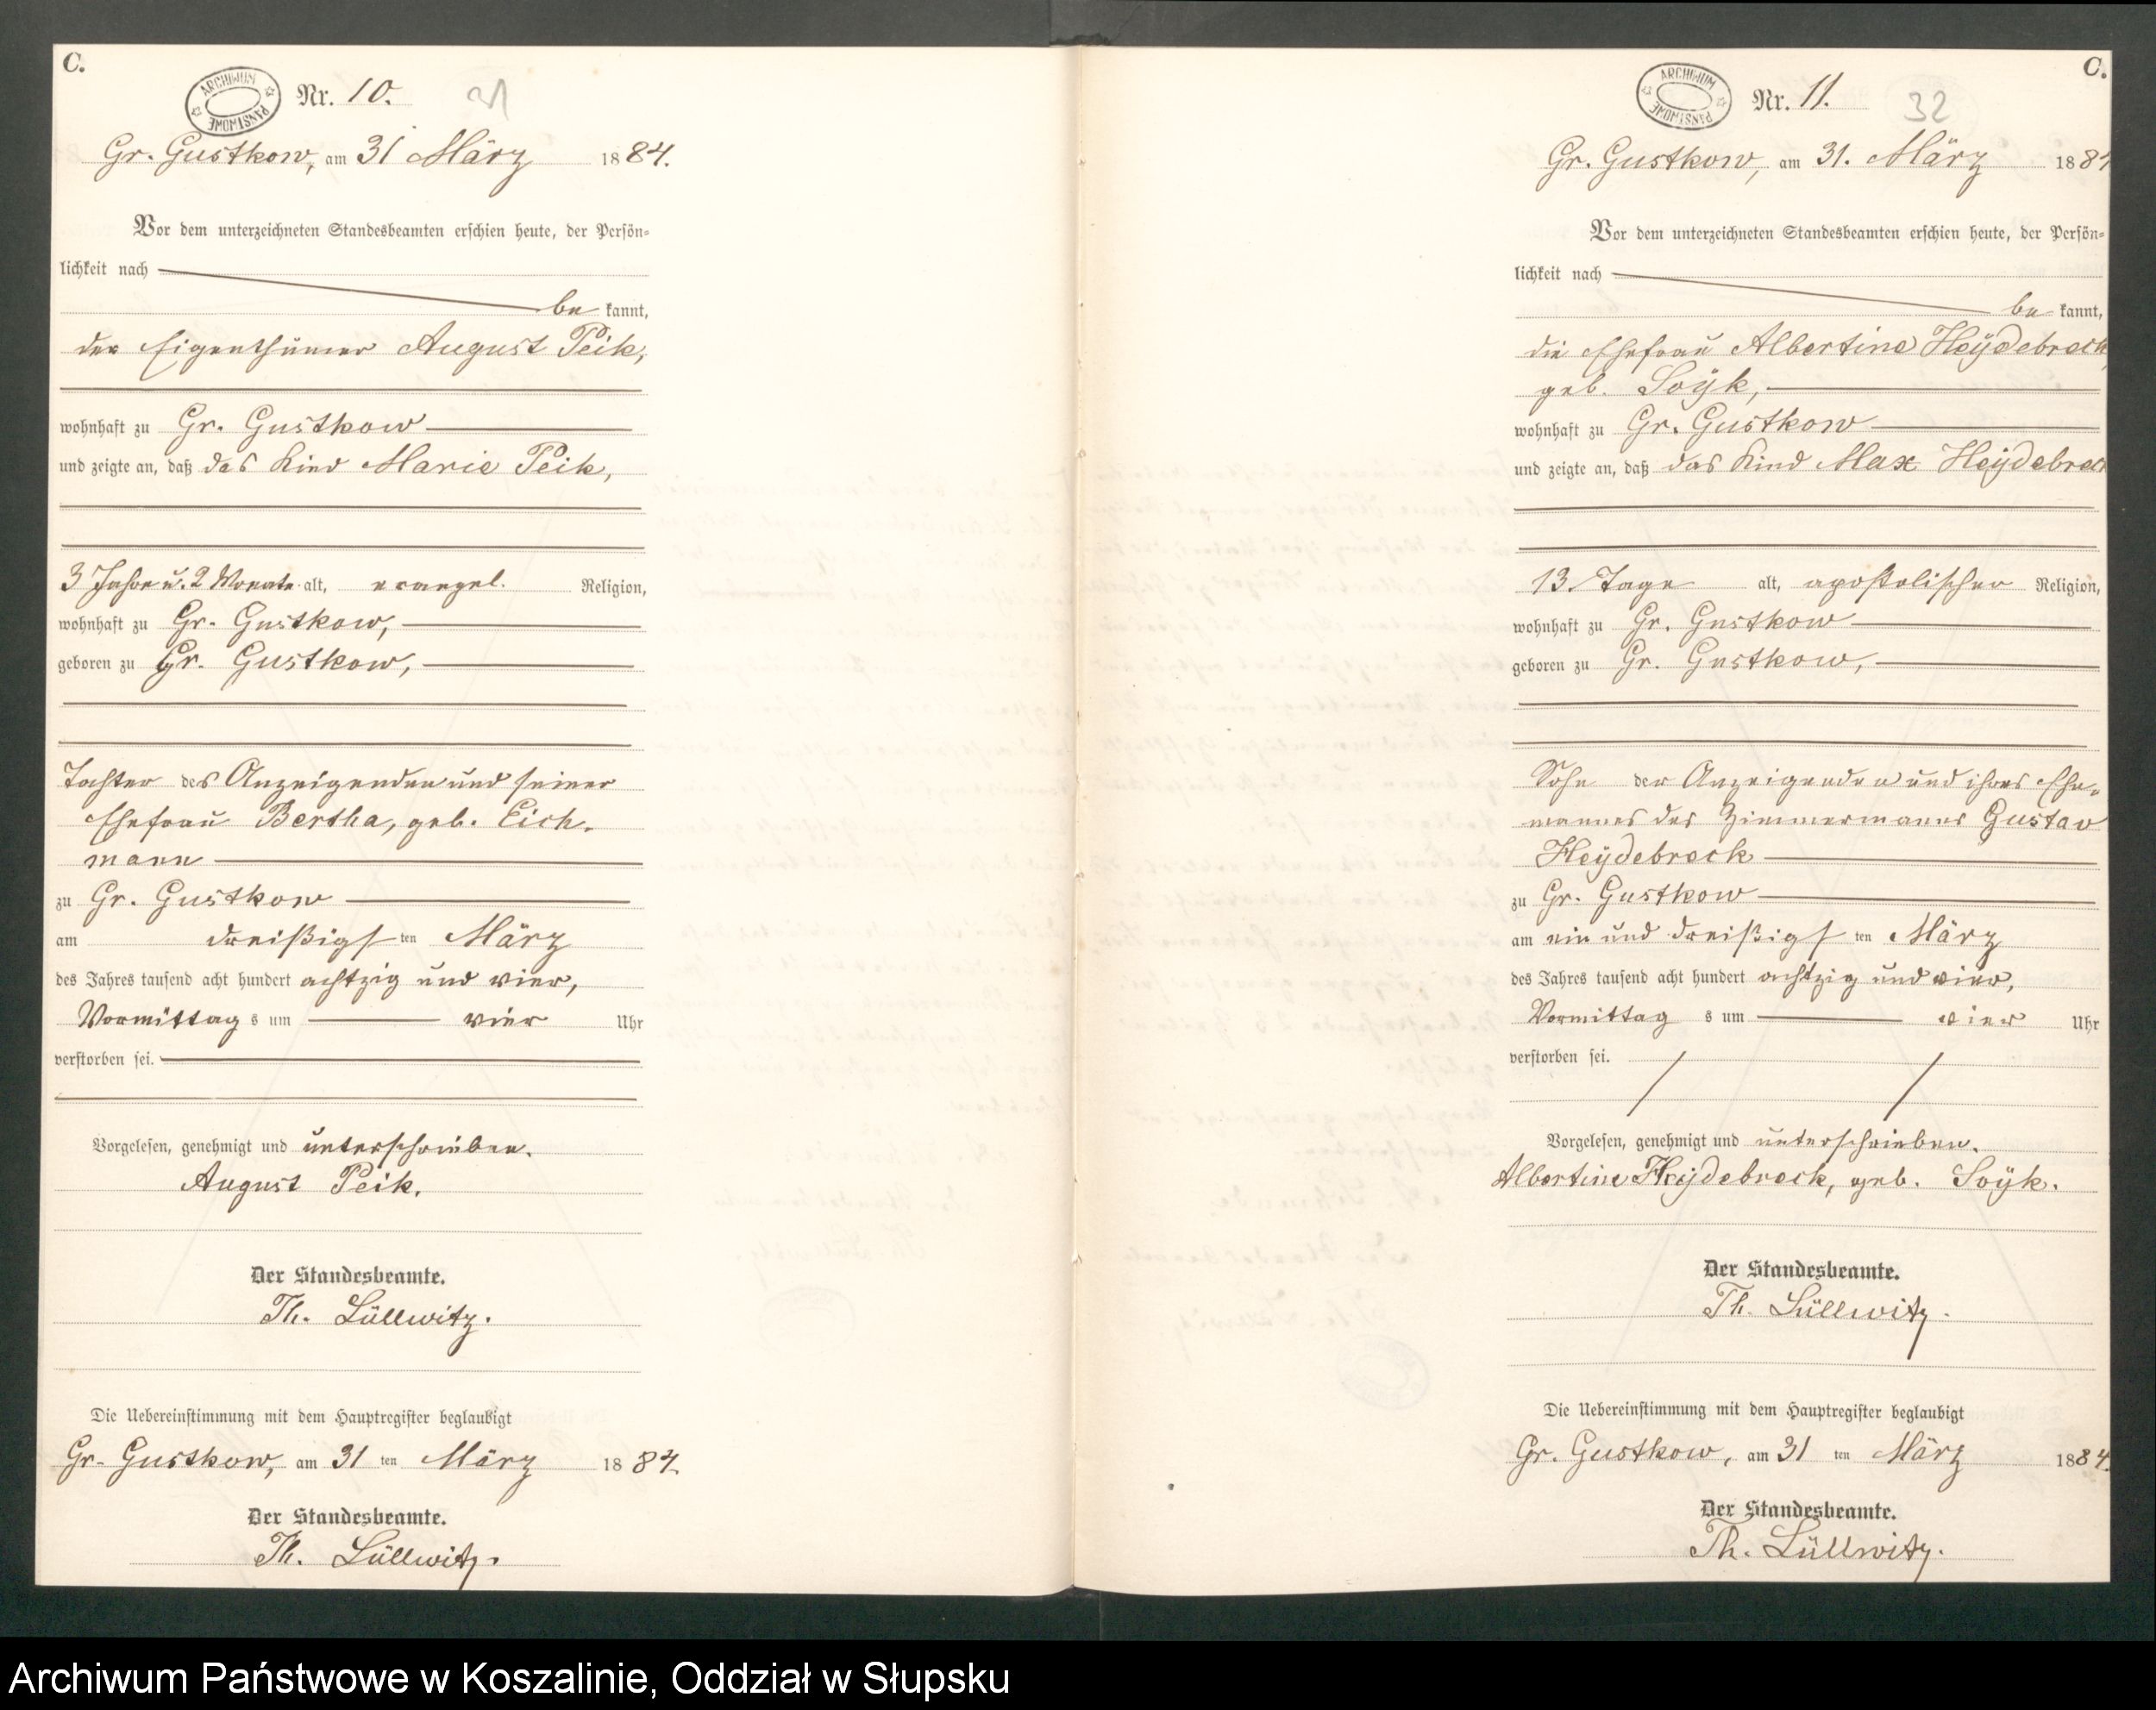 C.
ARCHIWUM PAŃSTWOWE
Nr. 10.
31
Gr. Gustkow, am 31 März 1884.
Vor dem unterzeichneten Standesbeamten erschien heute, der Persön-
lichkeit nach
be kannt,
der Eigenthümer August Peik,
wohnhaft zu Gr. Gustkow
und zeigte an, daß das Kind Marie Peik,
3 Jahre u. 2 Monate alt, evangel. Religion,
wohnhaft zu Gr. Gustkow,
geboren zu Gr. Gustkow,
Tochter des Anzeigenden und seiner
Ehefrau Bertha, geb. Eich-
mann
zu Gr. Gustkow
am dreißigsten März
des Jahres tausend acht hundert achtzig und vier,
Vormittags um vier Uhr
verstorben sei.
Vorgelesen, genehmigt und unterschrieben.
August Peik.
Der Standesbeamte.
Th. Lüllwitz.
Die Uebereinstimmung mit dem Hauptregister beglaubigt
Gr. Gustkow, am 31 ten März 1884.
Der Standesbeamte.
Th. Lüllwitz.
C.
ARCHIWUM PAŃSTWOWE
Nr. 11.
32
Gr. Gustkow, am 31. März 1884
Vor dem unterzeichneten Standesbeamten erschien heute, der Persön-
lichkeit nach
be kannt,
die Ehefrau Albertine Heÿdebreck
geb. Soÿk,
wohnhaft zu Gr. Gustkow
und zeigte an, daß das Kind Max Heÿdebreck
13 Tage alt, apostolischer Religion,
wohnhaft zu Gr. Gustkow
geboren zu Gr. Gustkow,
Sohn der Anzeigenden und ihres Ehe-
mannes des Zimmermanns Gustav
Heÿdebreck
zu Gr. Gustkow
am ein und dreißigsten März
des Jahres tausend acht hundert achtzig und vier,
Vormittags um vier Uhr
verstorben sei.
Vorgelesen, genehmigt und unterschrieben.
Albertine Heÿdebreck, geb. Soÿk.
Der Standesbeamte.
Th. Lüllwitz.
Die Uebereinstimmung mit dem Hauptregister beglaubigt
Gr. Gustkow, am 31 ten März 1884.
Der Standesbeamte.
Th. Lüllwitz.
Archiwum Państwowe w Koszalinie, Oddział w Słupsku